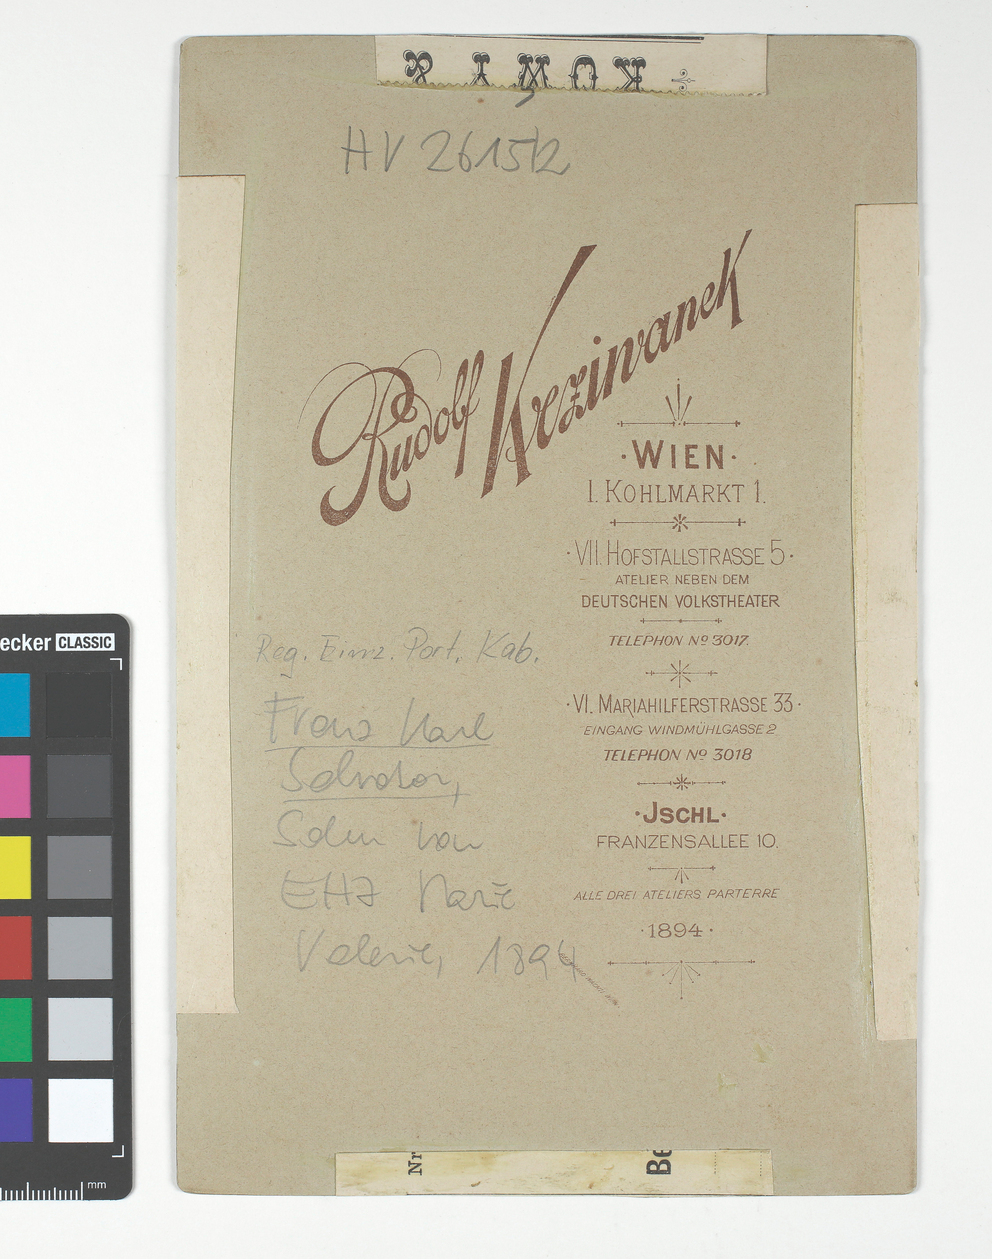 HV 26152
Rudolf Krziwanek
·WIEN·
I. KOHLMARKT 1.
·VII. HOFSTALLSTRASSE 5·
ATELIER NEBEN DEM
DEUTSCHEN VOLKSTHEATER
TELEPHON Nº 3017.
·VI. MARIAHILFERSTRASSE 33·
EINGANG WINDMÜHLGASSE 2
TELEPHON Nº 3018
·JSCHL·
FRANZENSALLEE 10.
ALLE DREI ATELIERS PARTERRE
·1894·
Reg. Einz. Port. Kab.
Franz Karl
Salvator,
Sohn von
EHZ Marie
Valerie, 1894
Nr
Be
ecker CLASSIC
mm